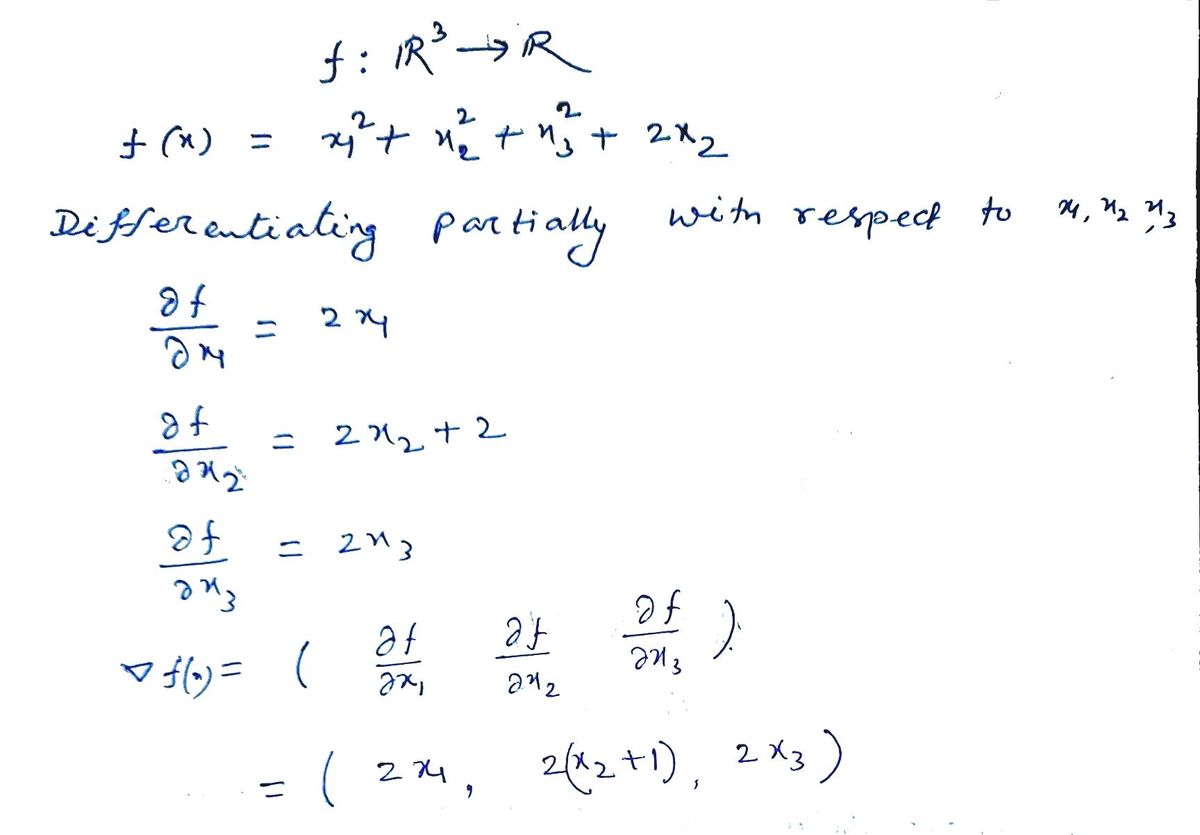 f : ℝ³ → ℝ
f(x) = x₁² + x₂² + x₃² + 2x₂
Differentiating partially with respect to x₁, x₂, x₃
∂f/∂x₁ = 2x₁
∂f/∂x₂ = 2x₂ + 2
∂f/∂x₃ = 2x₃
∇f(x) = ( ∂f/∂x₁ ∂f/∂x₂ ∂f/∂x₃ )
= ( 2x₁, 2(x₂+1), 2x₃ )